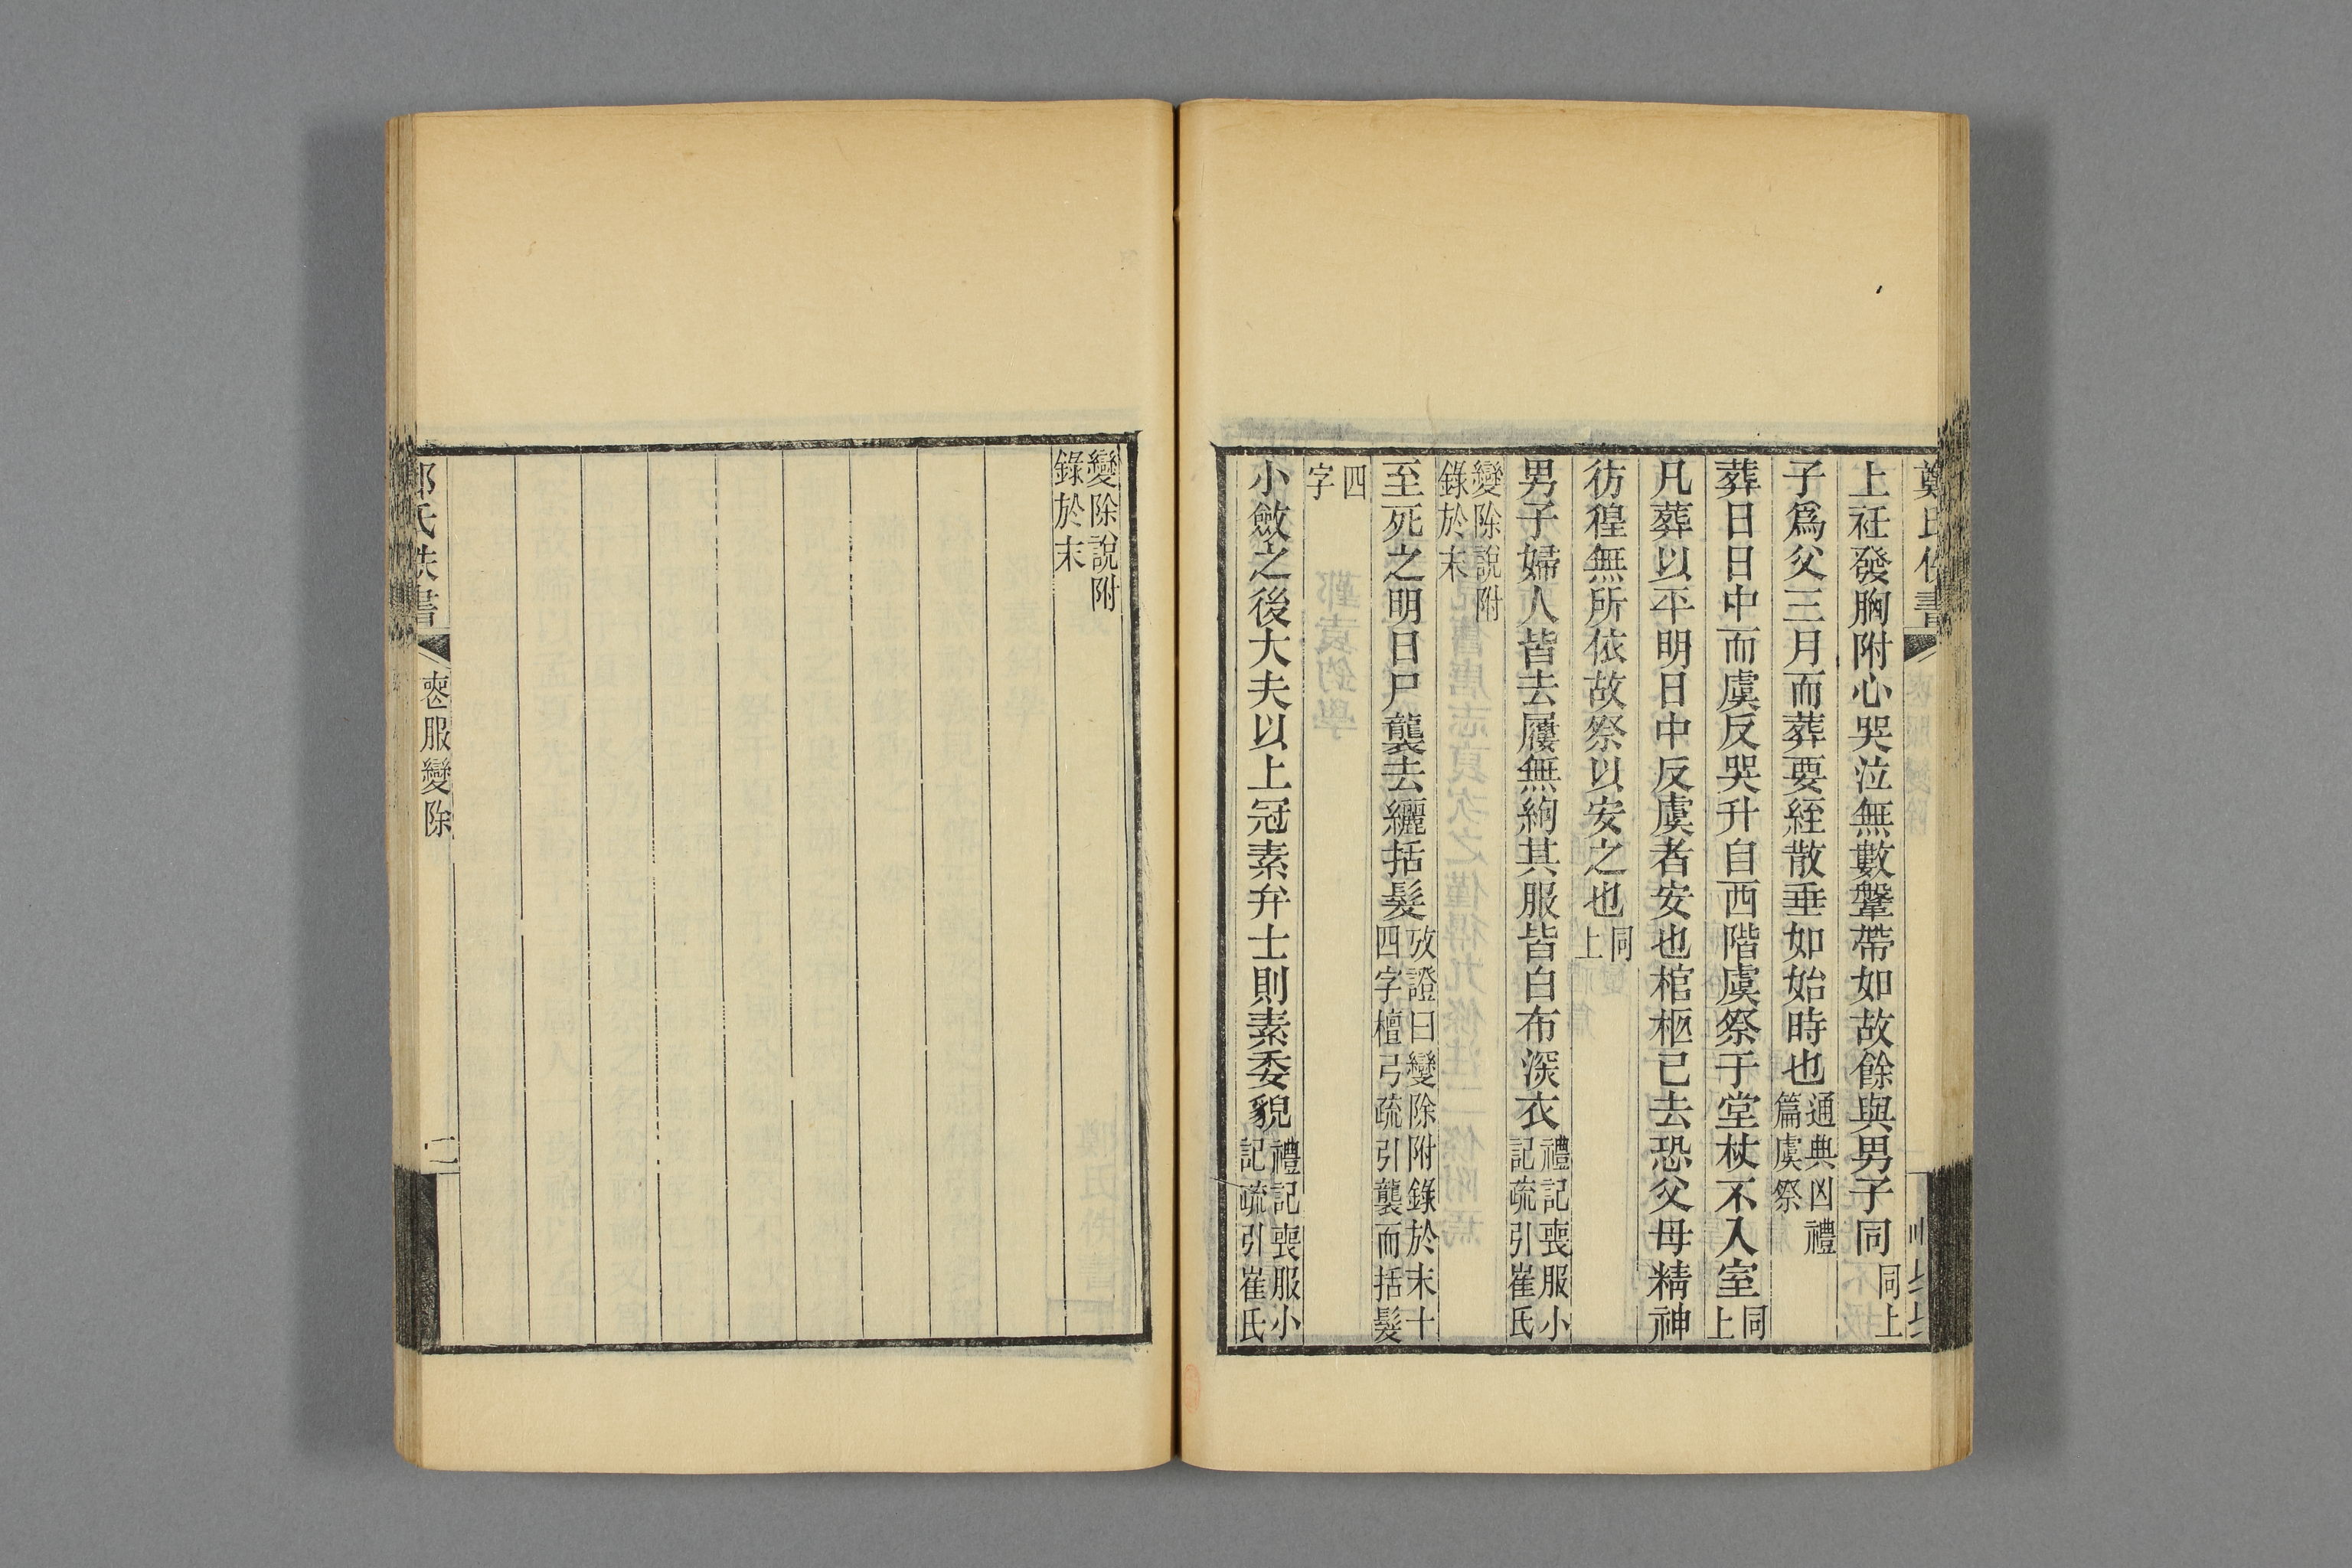 上衽發胸附心哭泣無數鞶帶如故餘與男子同同上
子爲父三月而葬要絰散垂如始時也通典凶禮篇虞祭
葬日日中而虞反哭升自西階虞祭于堂杖不入室同上
凡葬以平明日中反虞者安也棺柩已去恐父母精神
彷徨無所依故祭以安之也同上
男子婦人皆去屨無絇其服皆白布深衣禮記喪服小記疏引崔氏
變除說附錄於末
至死之明日尸襲去纚括髮攷證曰變除附錄於末十四字檀弓疏引襲而括髮
四字
小斂之後大夫以上冠素弁士則素委貌禮記喪服小記疏引崔氏
變除說附錄於末
鄭氏佚書
喪服變除
二